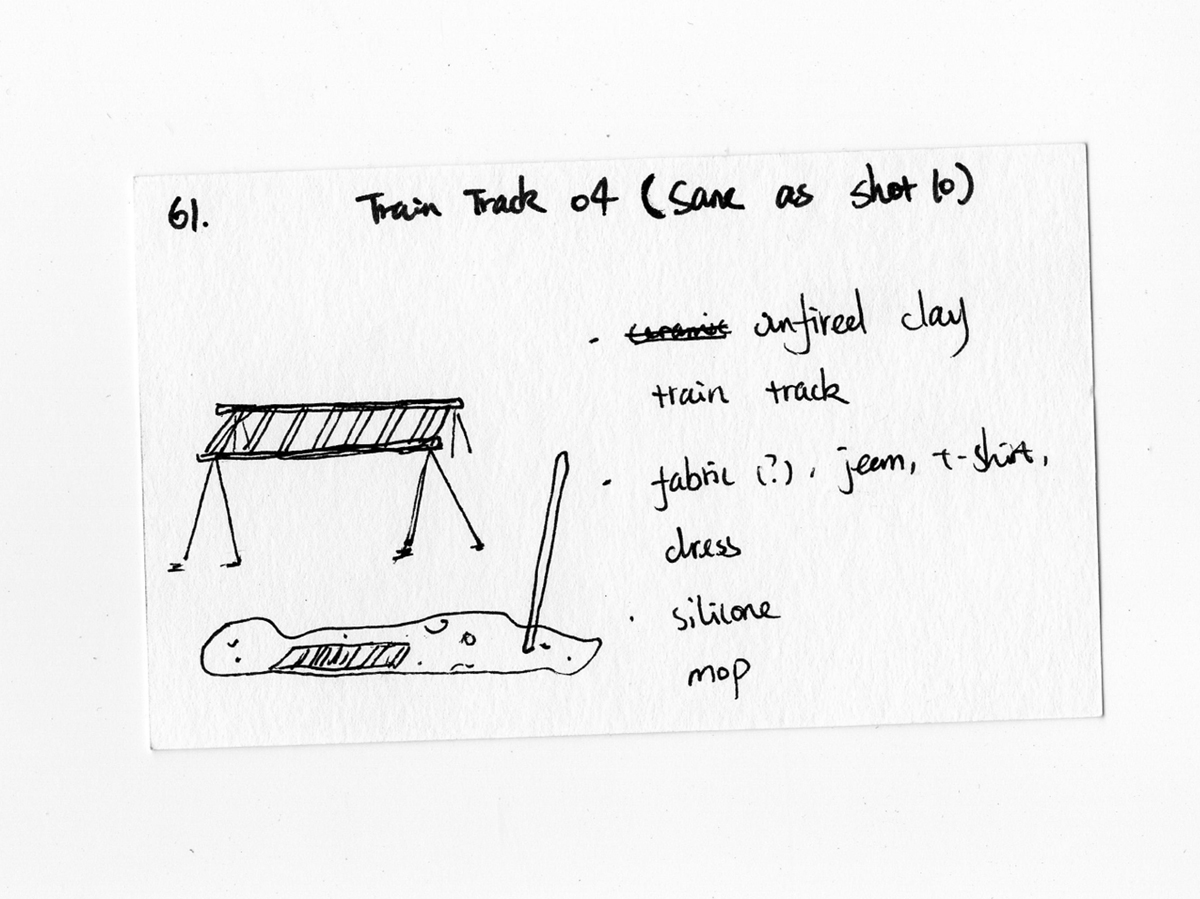 61.
Train Track 04 (Same as shot 10)
· ceramic unfired clay
train track
· fabric (?), jean, t-shirt,
dress
· silicone
mop